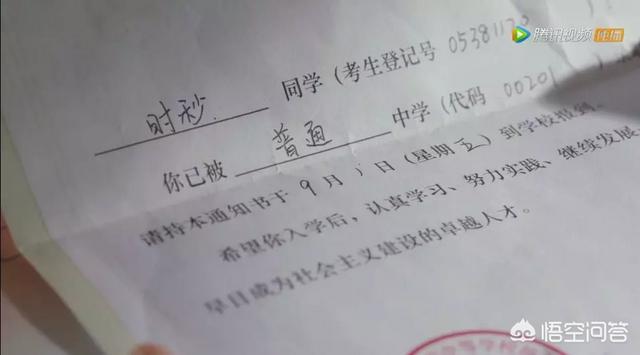 腾讯视频 独播
时秒 同学（考生登记号 0538112
你已被 普通 中学（代码 00201
请持本通知书于 9 月 1 日（星期 五）到学校报到。
希望你入学后，认真学习、努力实践、继续发展
早日成为社会主义建设的卓越人才。
悟空问答